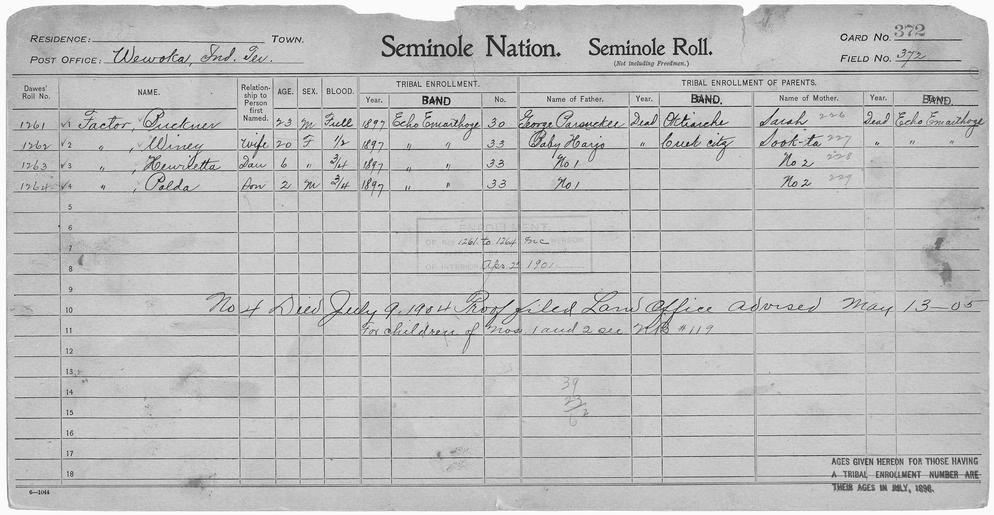 RESIDENCE: TOWN.
POST OFFICE: Wewoka, Ind. Ter.
Seminole Nation. Seminole Roll.
(Not including Freedmen.)
CARD NO. 372
FIELD NO. 372
Dawes' Roll No. NAME. Relationship to Person first Named. AGE. SEX. BLOOD. TRIBAL ENROLLMENT. TRIBAL ENROLLMENT OF PARENTS.
Year. BAND No. Name of Father. Year. BAND. Name of Mother. Year. BAND.
1261 √1 Factor, Puckner 23 M Full 1897 Echo Emarthoge 30 George Dead Sarah 226 Dead Echo Emarthoge
1262 √2 " , Winey Wife 20 F 1/2 1897 " " 33 Paby Harjo " 227 " " "
1263 √3 " , Henrietta Dau 6 " 3/4 1897 " " 33 No 1 No 2 228
1264 √4 " , Polda Son 2 M 3/4 1897 " " 33 No 1 No 2 229
5
6
7 1261 to 1264 inc
8 OF INTERIOR Apr. 2 1901
9
10 No 4 Died July 9, 1904 Proof filed Land Office advised May 13-05
11 For children of Nos 1 and 2 see #119
12
13
14 39
15 23
16 6
17
18
6—1044
AGES GIVEN HEREON FOR THOSE HAVING
A TRIBAL ENROLLMENT NUMBER ARE
THEIR AGES IN JULY, 1898.